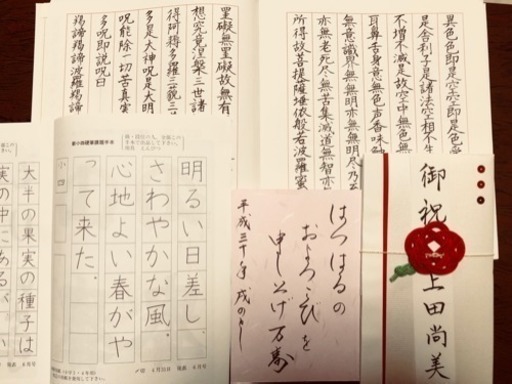 異色色即是空空即是色受
是舎利子是諸法空相不生
不増不減是故空中無色
耳鼻舌身意無色声香味触
無意識界無無明亦無無明尽乃至
亦無老死尽無苦集滅道無智亦
所得故菩提薩埵依般若波羅蜜
罣礙無罣礙故無有
想究竟涅槃三世諸
得阿耨多羅三藐三
多是大神呪是大明
呪能除一切苦真実
多呪即説呪曰
羯諦羯諦波羅羯諦
御祝
上田尚美
はつはるの
およろこびを
申し上げ万寿
平成三十年戌のとし
明るい日差し、
さわやかな風。
心地よい春がや
って来た。
大半の果実の種子は
実の中にあるが